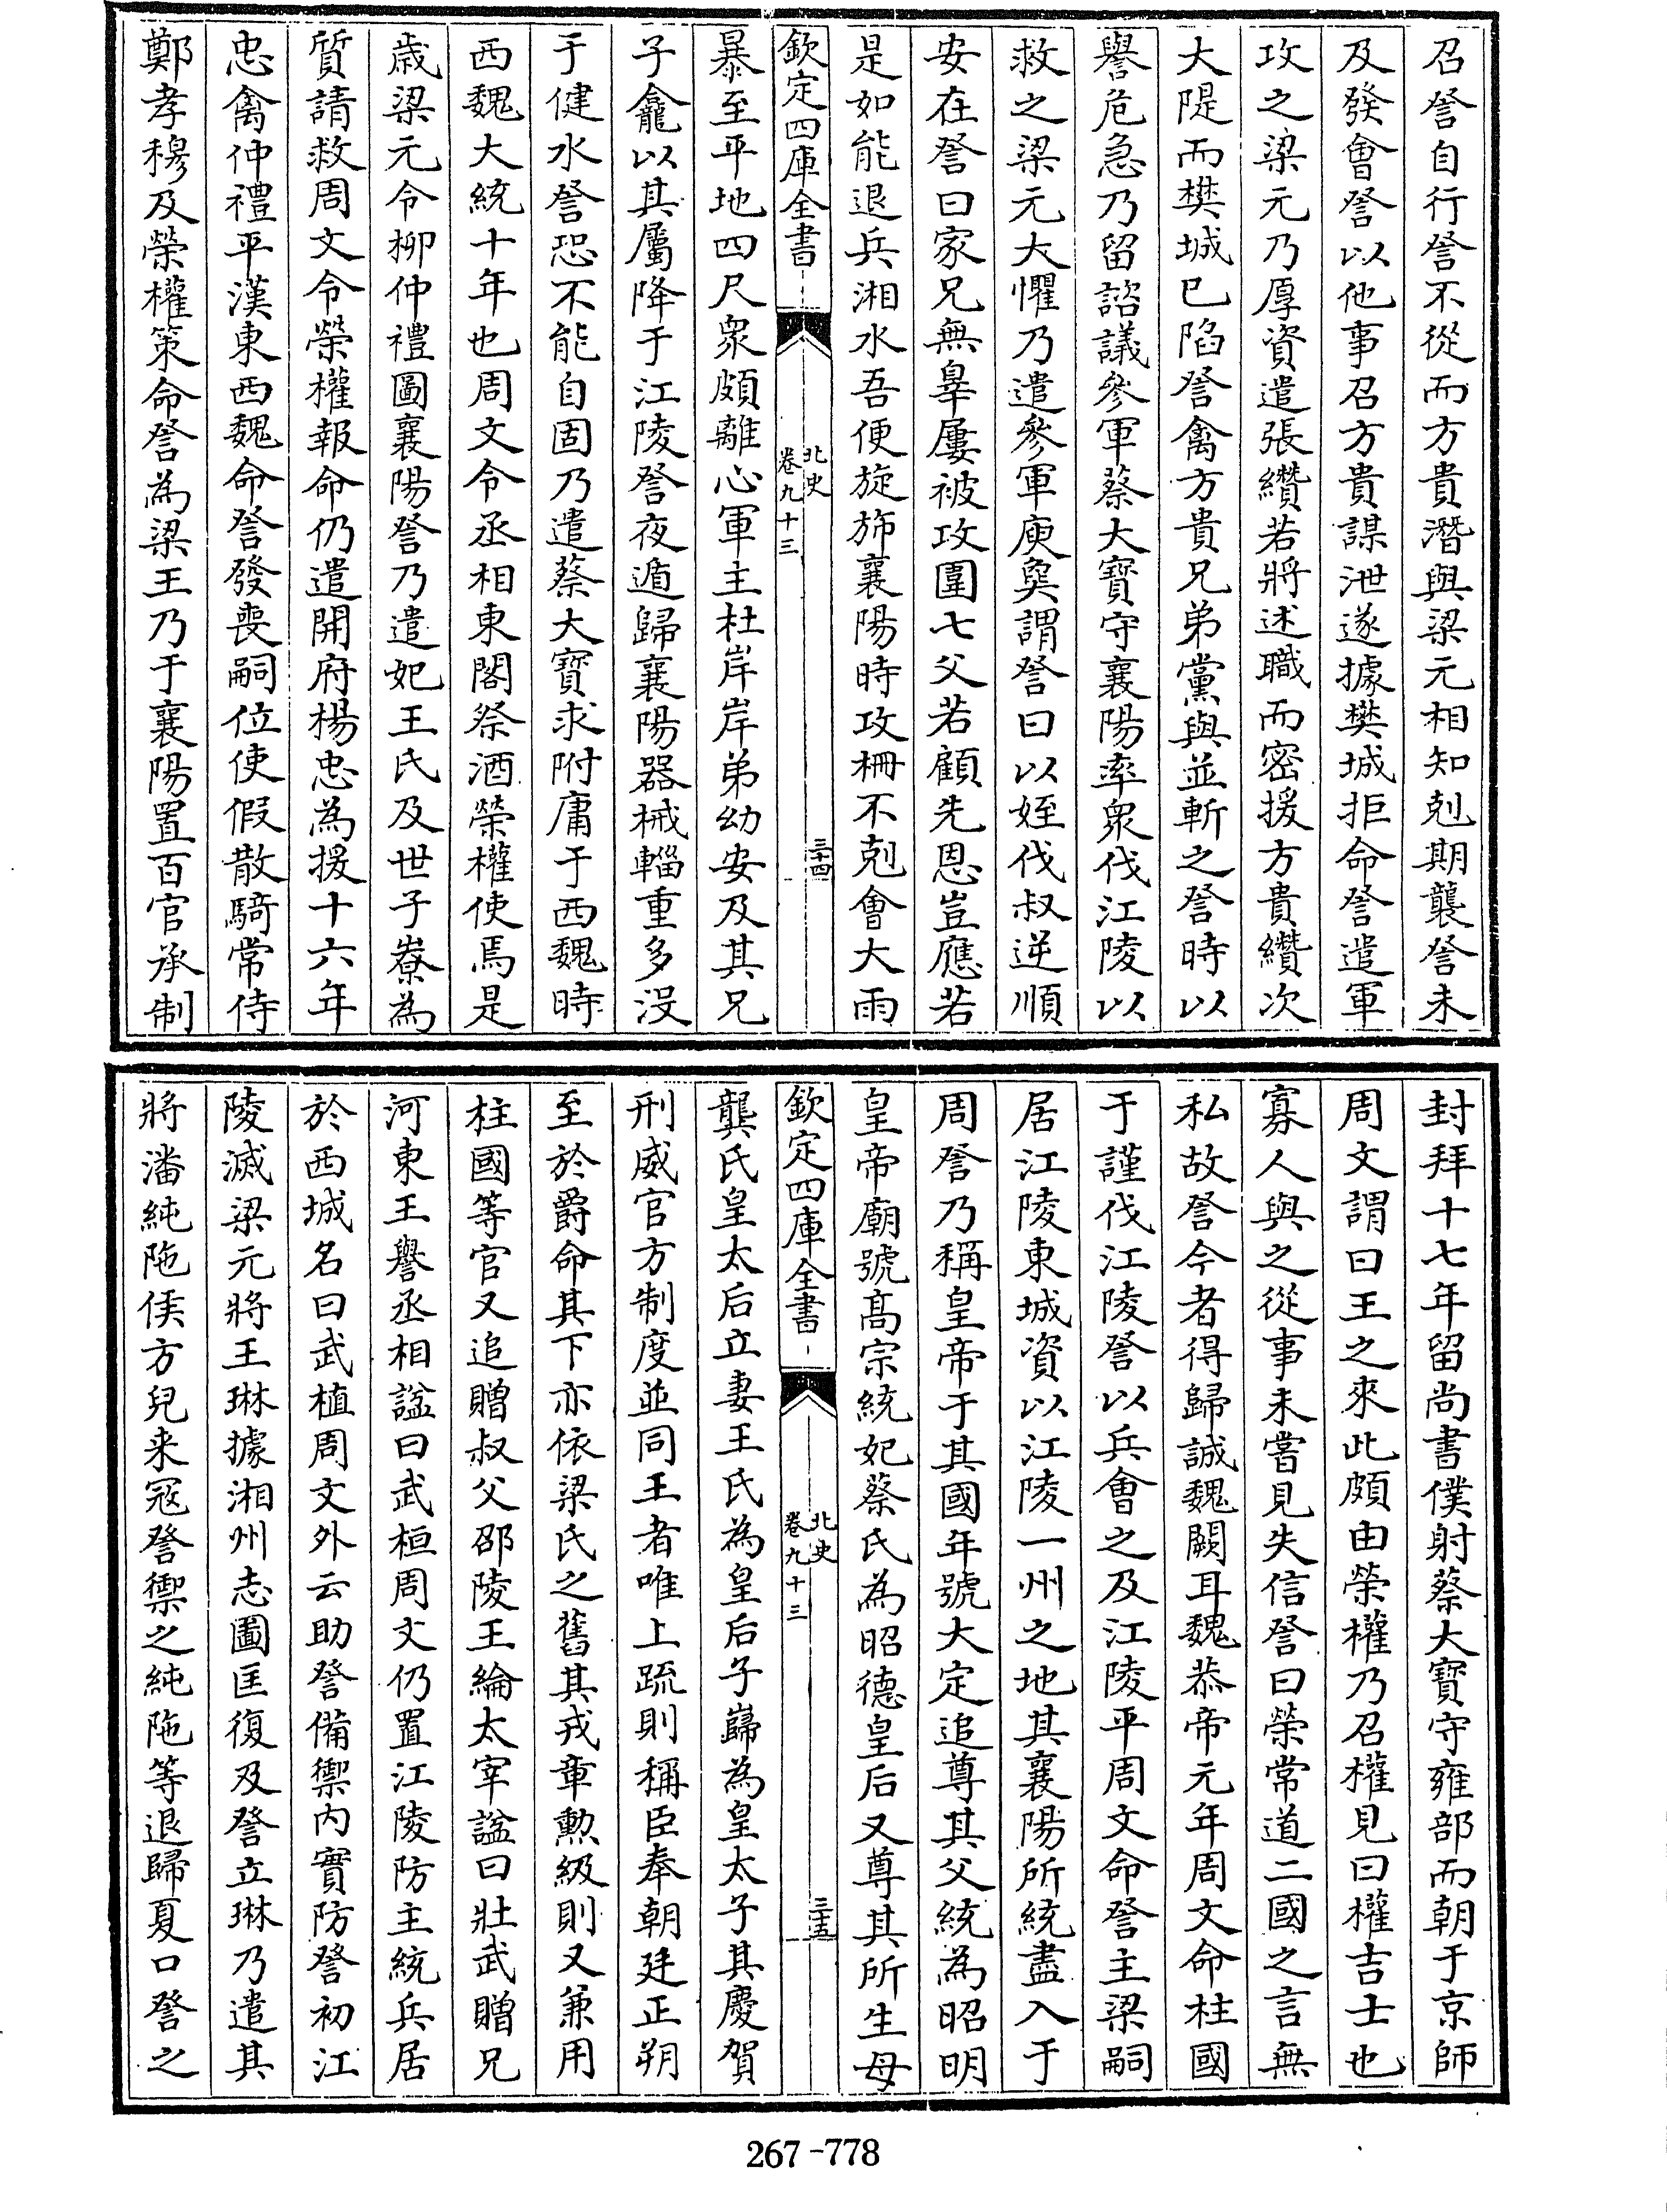 召詧自行詧不從而方貴潛與梁元相知剋期襲詧未
及發會詧以他事召方貴謀泄遂據樊城拒命詧遣軍
攻之梁元乃厚資遣張纘若將述職而密援方貴纘次
大隄而樊城已陷詧禽方貴兄弟黨與並斬之詧時以
譽危急乃留諮議參軍蔡大寶守襄陽率衆伐江陵以
救之梁元大懼乃遣參軍庾奐謂詧曰以姪伐叔逆順
安在詧曰家兄無辠屢被攻圍七父若顧先恩豈應若
是如能退兵湘水吾便旋斾襄陽時攻柵不剋會大雨
欽定四庫全書
北史
卷九十三
三十四
暴至平地四尺衆頗離心軍主杜岸岸弟幼安及其兄
子龕以其屬降于江陵詧夜遁歸襄陽器械輜重多沒
于健水詧恐不能自固乃遣蔡大寶求附庸于西魏時
西魏大統十年也周文令丞相東閤祭酒榮權使焉是
歲梁元令柳仲禮圖襄陽詧乃遣妃王氏及世子嶚為
質請救周文令榮權報命仍遣開府楊忠為援十六年
忠禽仲禮平漢東西魏命詧發喪嗣位使假散騎常侍
鄭孝穆及榮權策命詧為梁王乃于襄陽置百官承制
封拜十七年留尚書僕射蔡大寶守雍部而朝于京師
周文謂曰王之來此頗由榮權乃召權見曰權吉士也
寡人與之從事未嘗見失信詧曰榮常道二國之言無
私故詧今者得歸誠魏闕耳魏恭帝元年周文命柱國
于謹伐江陵詧以兵會之及江陵平周文命詧主梁嗣
居江陵東城資以江陵一州之地其襄陽所統盡入于
周詧乃稱皇帝于其國年號大定追尊其父統為昭明
皇帝廟號高宗統妃蔡氏為昭德皇后又尊其所生母
欽定四庫全書
北史
卷九十三
三十五
龔氏皇太后立妻王氏為皇后子巋為皇太子其慶賀
刑威官方制度並同王者唯上疏則稱臣奉朝廷正朔
至於爵命其下亦依梁氏之舊其戎章勲級則又兼用
柱國等官又追贈叔父邵陵王綸太宰諡曰壯武贈兄
河東王譽丞相諡曰武桓周文仍置江陵防主統兵居
於西城名曰武植周文外云助詧備禦內實防詧初江
陵滅梁元將王琳據湘州志圖匡復及詧立琳乃遣其
將潘純陁侯方兒来寇詧禦之純陁等退歸夏口詧之
267-778